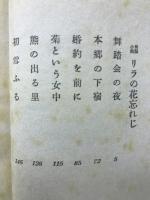 リラの花忘れじ
舞踏会の夜 5
本郷の下宿 72
婚約を前に 85
菊という女中 115
熊の出る里 126
初雪ふる 146